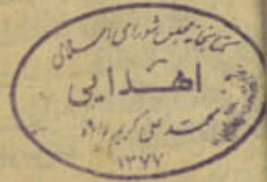 کتابخانه مجلس شورای اسلامی
اهدایی
محمد علی کریم
۱۳۷۷